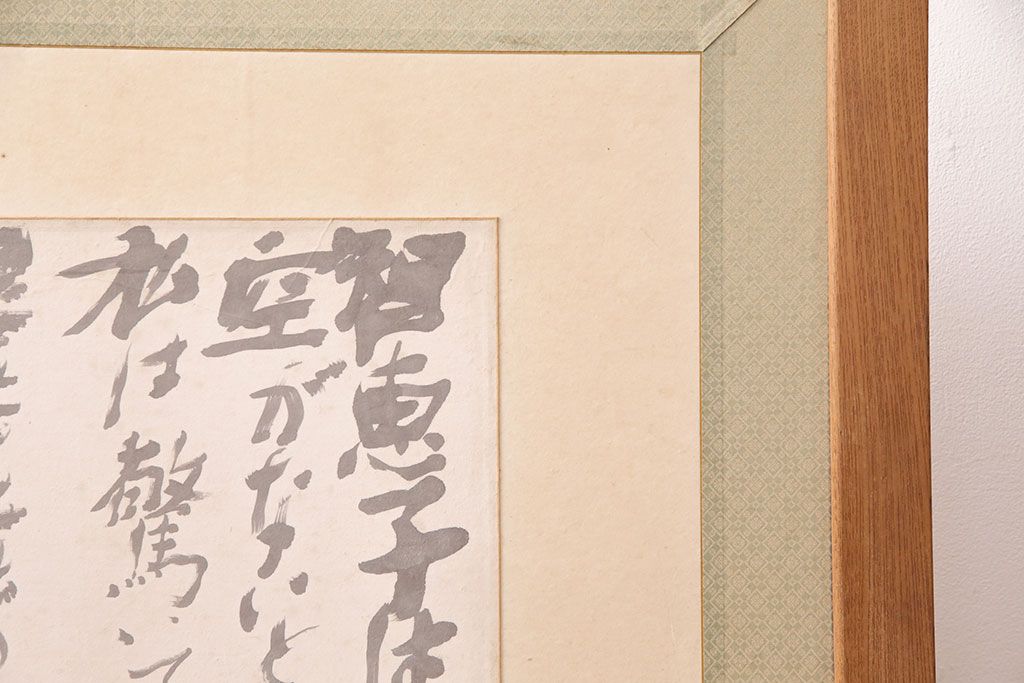 智恵子は
空がないと
私は驚いて